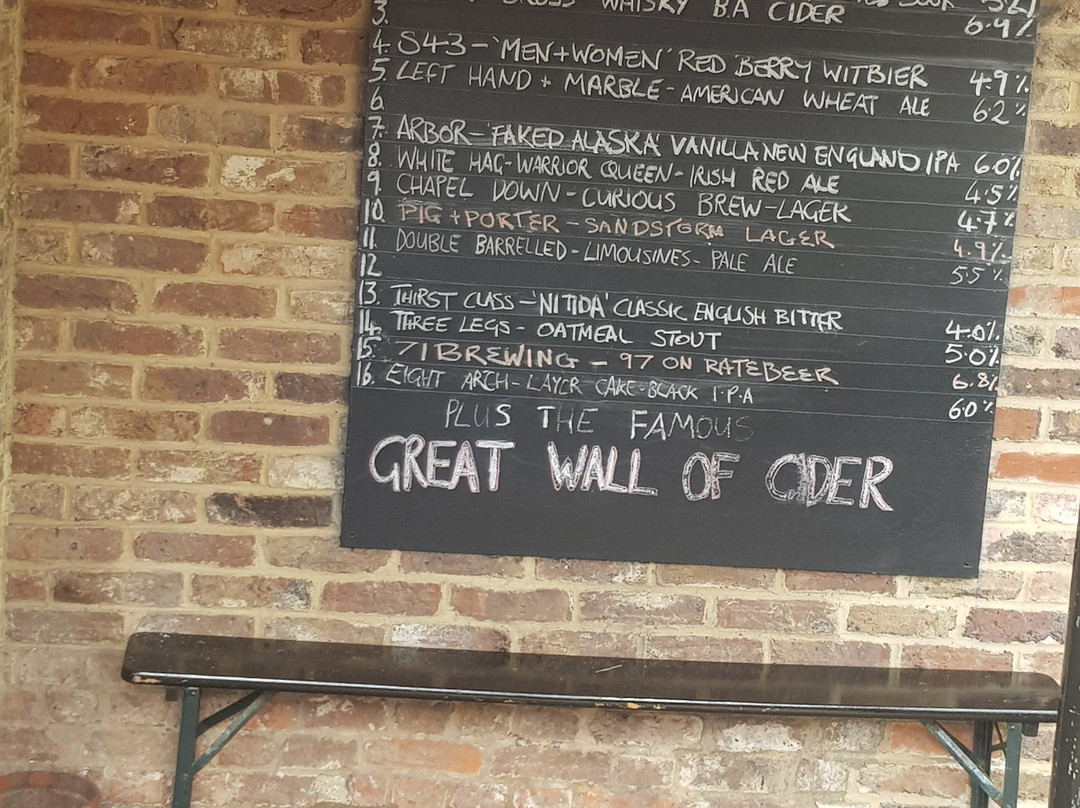 WHISKY B.A CIDER 6.9%
3.
4. S43 - 'MEN+WOMEN' RED BERRY WITBIER 4.9%
5. LEFT HAND + MARBLE - AMERICAN WHEAT ALE 6.2%
6.
7. ARBOR - 'FAKED ALASKA' VANILLA NEW ENGLAND IPA 6.0%
8. WHITE HAG - WARRIOR QUEEN - IRISH RED ALE 4.5%
9. CHAPEL DOWN - CURIOUS BREW - LAGER 4.7%
10. PIG + PORTER - SANDSTORM LAGER 4.9%
11. DOUBLE BARRELLED - LIMOUSINES - PALE ALE 5.5%
12.
13. THIRST CLASS - 'NITIDA' CLASSIC ENGLISH BITTER 4.0%
14. THREE LEGS - OATMEAL STOUT 5.0%
15. 71 BREWING - 97 ON RATEBEER 6.8%
16. EIGHT ARCH - LAYER CAKE - BLACK I.P.A 6.0%
PLUS THE FAMOUS
GREAT WALL OF CIDER